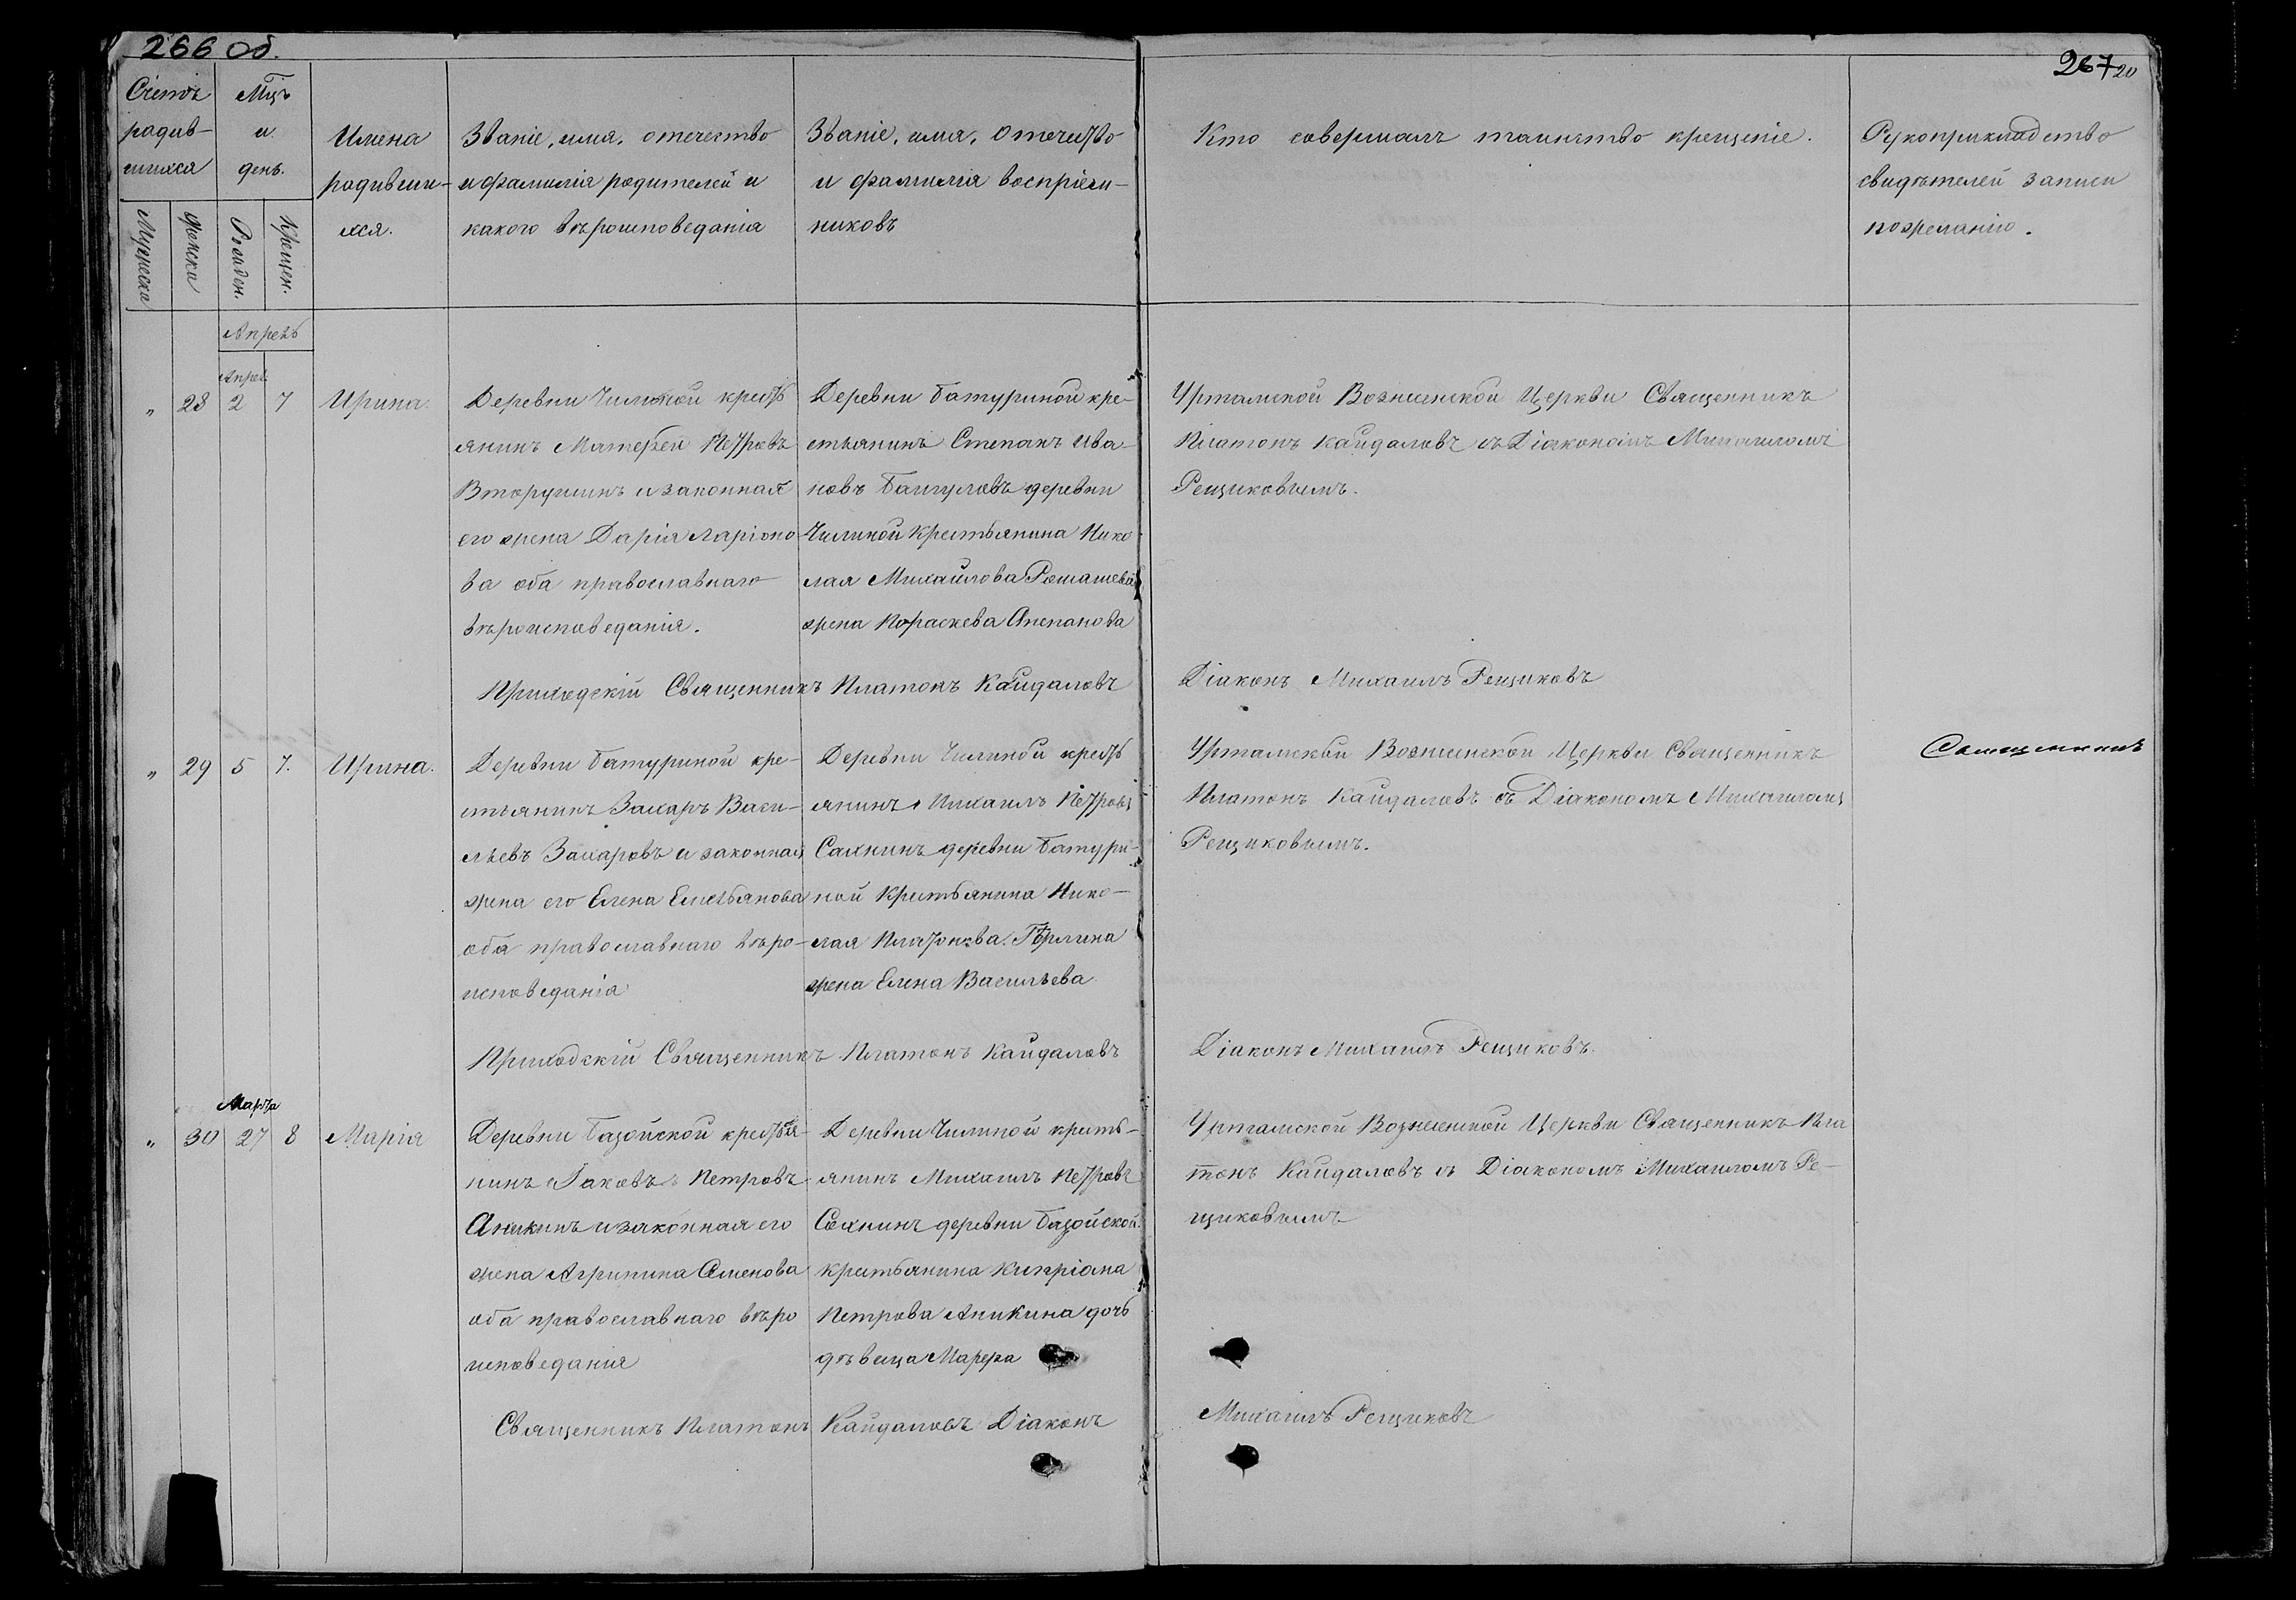 266 об.
267 20
Счетъ родив-шихся
Мужеска
Женска
Мѣцъ и день.
Рожден.
Крещен.
Имена родивши-хся.
Званіе, имя, отечество
и фамилія родителей и
какого вѣроисповеданія
Званіе, имя, отечество
и фамилія воспріем-
никовъ
Кто совершалъ таинство крещеніе.
Рукоприкладство
свидѣтелей записи
пожеланію.
Апрель
Апрел.
„ 28 2 7 Ирина.
Деревни Чилиной кресть
янинъ Матфей Петровъ
Вторушинъ и законная
его жена Дарія Ларіоно
ва оба православнаго
вѣроисповеданія.
Деревни Батуриной кре-
стьянинъ Степанъ Ива-
новъ Баигуловъ деревни
Чилиной крестьянина Нико
лая Михаилова
жена Пораскева Степанова
Уртамской Вознесенской Церкви Священникъ
Платонъ Кайдаловъ съ Діакономъ Михаиломъ
Рещиковымъ.
Приходскій Священникъ Платонъ Кайдаловъ
Діаконъ Михаилъ Рещиковъ
„ 29 5 7. Ирина.
Деревни Батуриной кре-
стьянинъ Захаръ Васи-
льевъ Захаровъ и законная
жена его Елена Емельянова
оба православнаго вѣро-
исповеданія
Деревни Чилиной кресть
янинъ Михаилъ Петровъ
Сахнинъ деревни Батури-
ной крестьянина Нико-
лая Платонова
жена Елена Васильева
Уртамской Вознесенской Церкви Священникъ
Платонъ Кайдаловъ съ Діакономъ Михаиломъ
Рещиковымъ.
Священникъ
Приходскій Священникъ Платонъ Кайдаловъ
Діаконъ Михаилъ Рещиковъ.
Марта
„ 30 27 8 Марія
Деревни Базойской крестья-
нинъ Іаковъ Петровъ
Аникинъ и законная его
жена Агрипина Семенова
оба православнаго вѣро
исповеданія
Деревни Чилиной кресть-
янинъ Михаилъ Петровъ
Сахнинъ деревни Базойской
крестьянина Кипріана
Петрова Аникина дочь
дѣвица Марфа
Уртамской Вознесенской Церкви Священникъ Пла
тонъ Кайдаловъ съ Діакономъ Михаиломъ Ре-
щиковымъ
Священникъ Платонъ Кайдаловъ Діаконъ
Михаилъ Рещиковъ